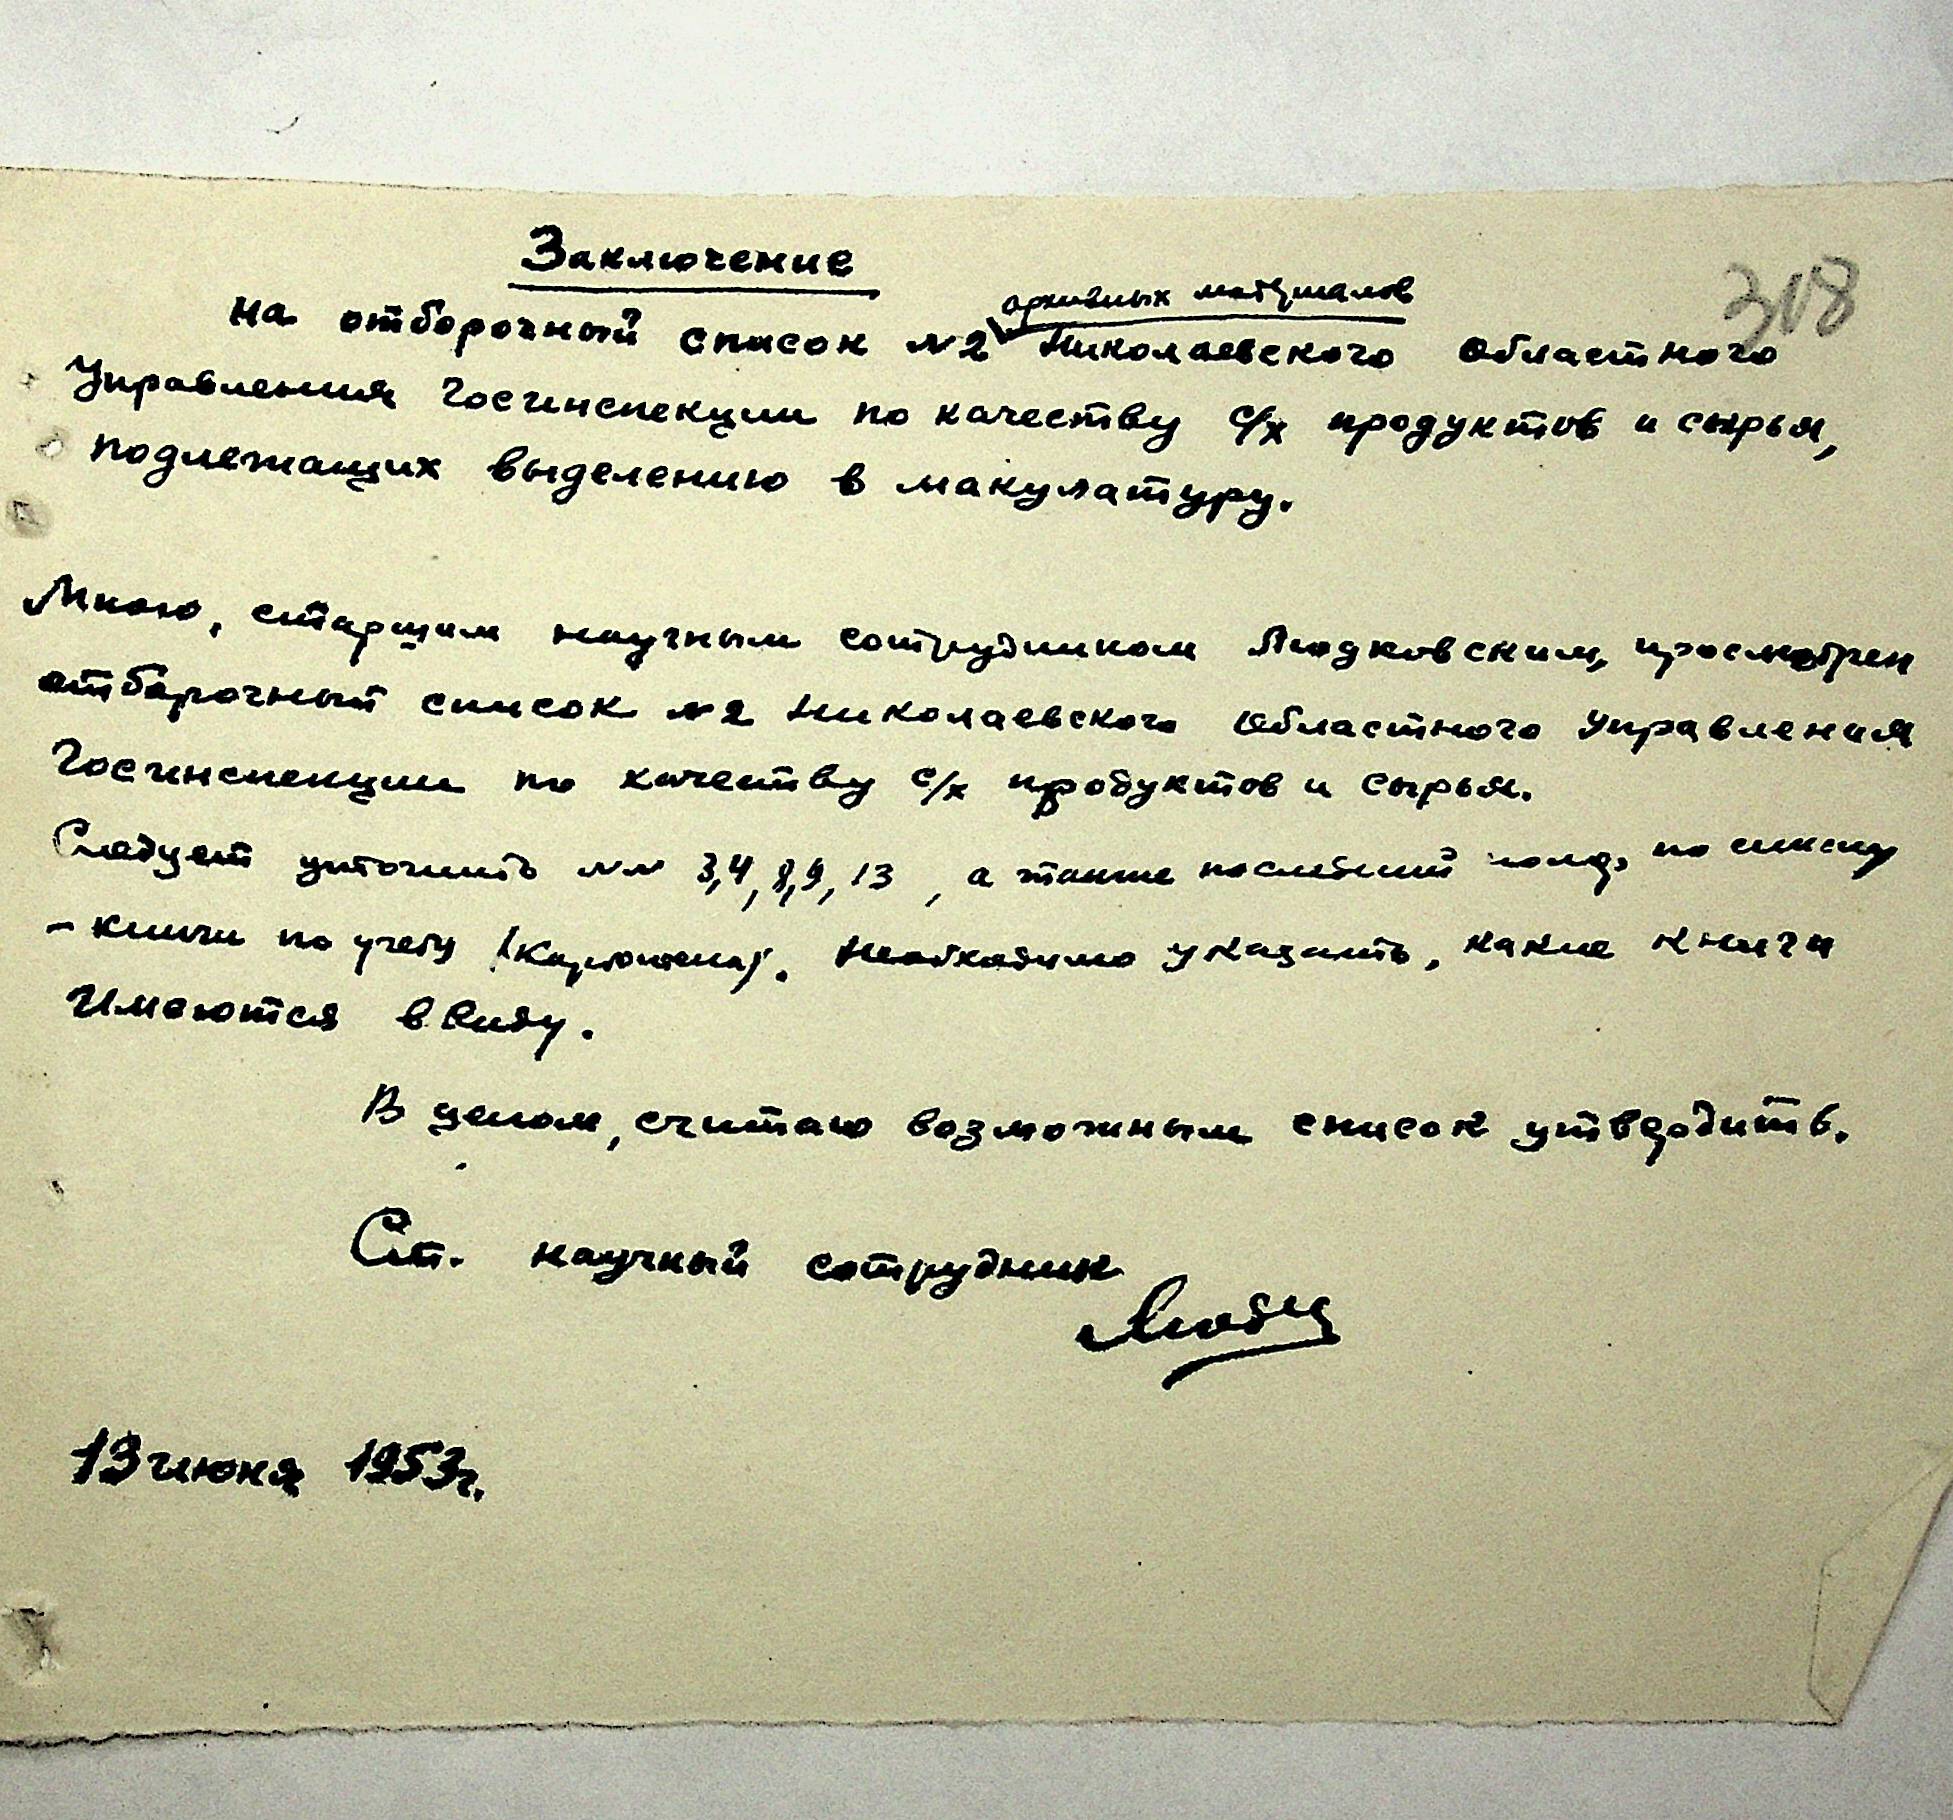 Заключение
318
на отборочный список №2 архивных материалов Николаевского Областного
Управления Госинспекции по качеству с/х продуктов и сырья,
подлежащих выделению в макулатуру.
Мною, старшим научным сотрудником Людковским, просмотрен
отборочный список №2 Николаевского Областного Управления
Госинспекции по качеству с/х продуктов и сырья.
Следует уточнить №№ 3,4,8,9,13, а также последний по списку
- книги по учету /Картотека/. Необходимо указать, какие книги
имеются ввиду.
В целом, считаю возможным список утвердить.
Ст. научный сотрудник
13 июня 1953г.